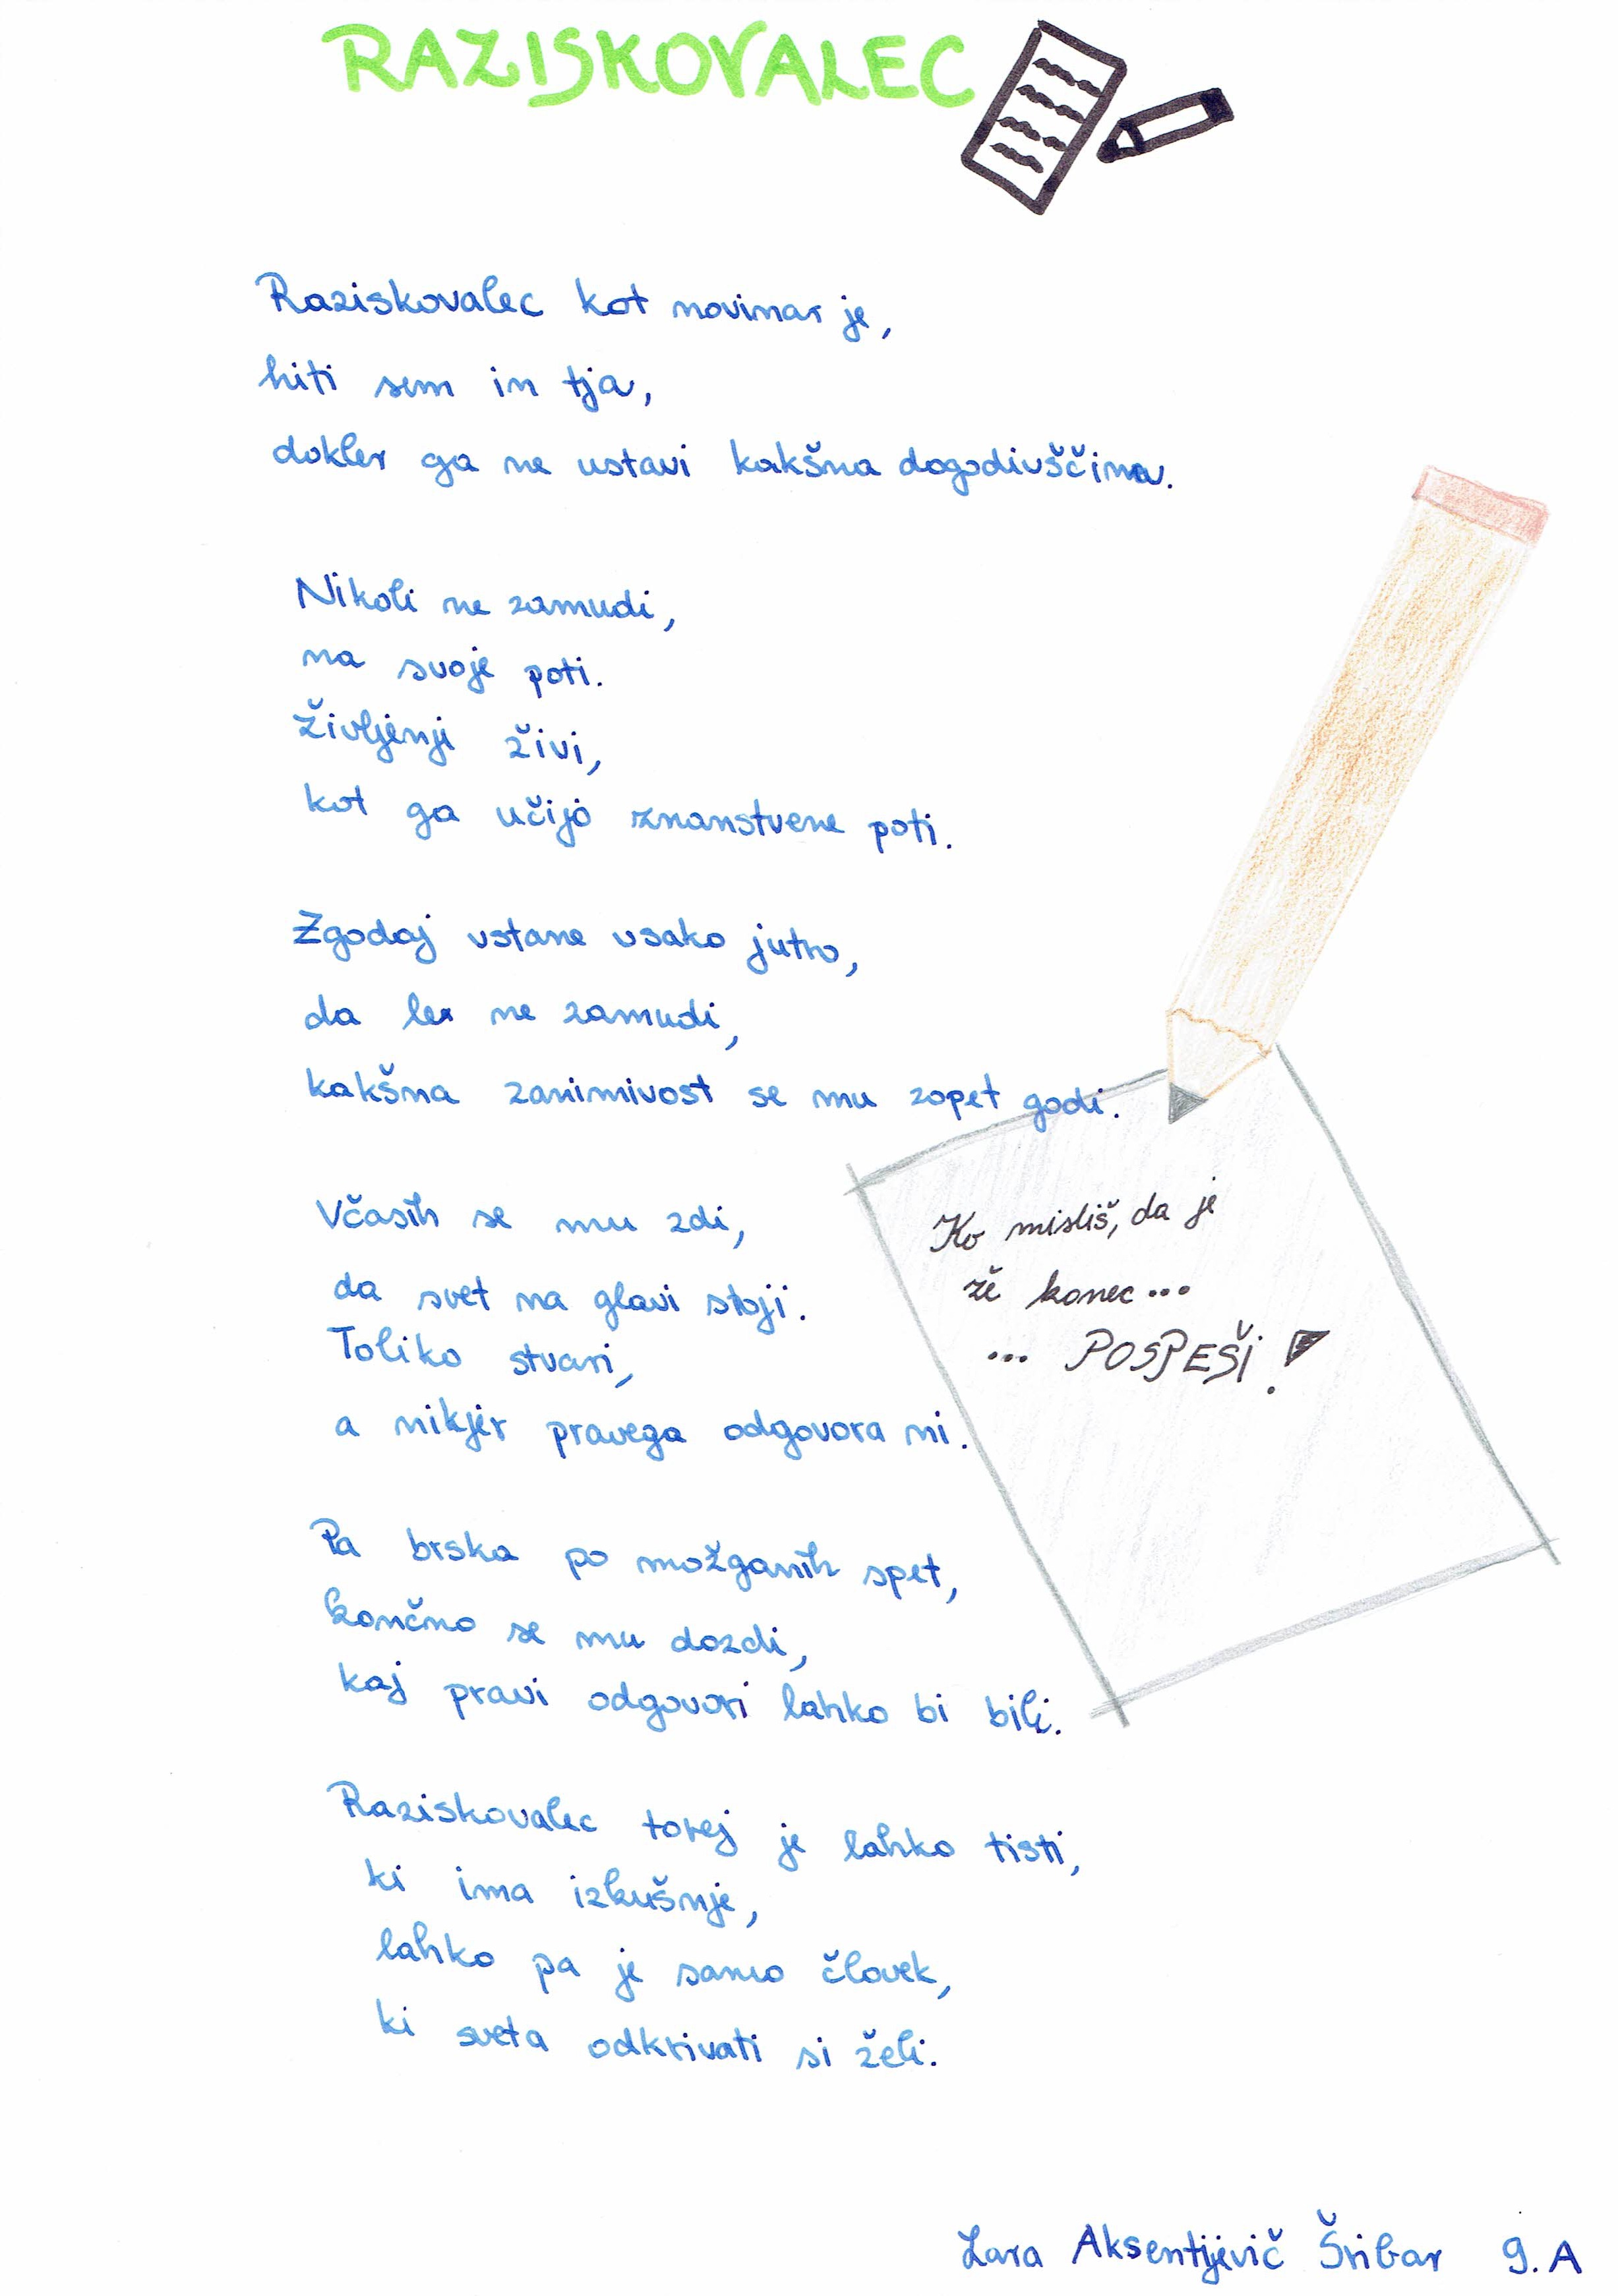 RAZISKOVALEC
Raziskovalec kot novinar je,
hiti sem in tja,
dokler ga ne ustavi kakšna dogodivščina.
Nikoli ne zamudi,
na svoje poti.
Življenji živi,
kot ga učijo znanstvene poti.
Zgodaj vstane vsako jutro,
da ne zamudi,
kakšna zanimivost se mu zopet godi.
Včasih se mu zdi,
da svet na glavi stoji.
Toliko stvari,
a nikjer pravega odgovora ni.
Pa brska po možganih spet,
končno se mu dozdi,
kaj pravi odgovori lahko bi bili.
Raziskovalec torej je lahko tisti,
ki ima izkušnje,
lahko pa je samo človek,
ki sveta odkrivati si želi.
Ko misliš, da je
že konec...
... POSPEŠI!
Lara Aksentijevič Šribar 9. A